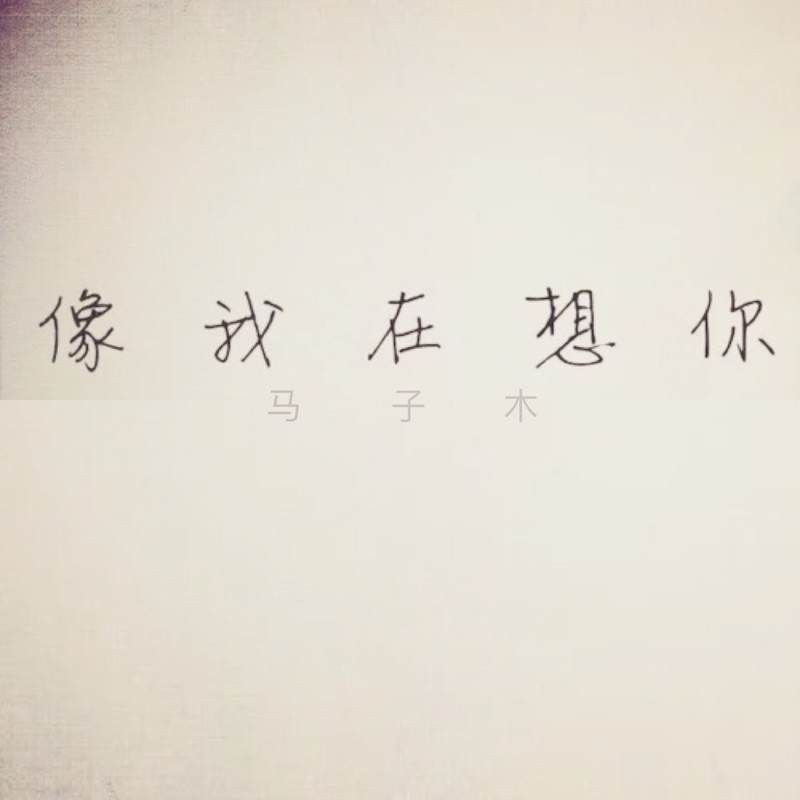 像我在想你
马子木